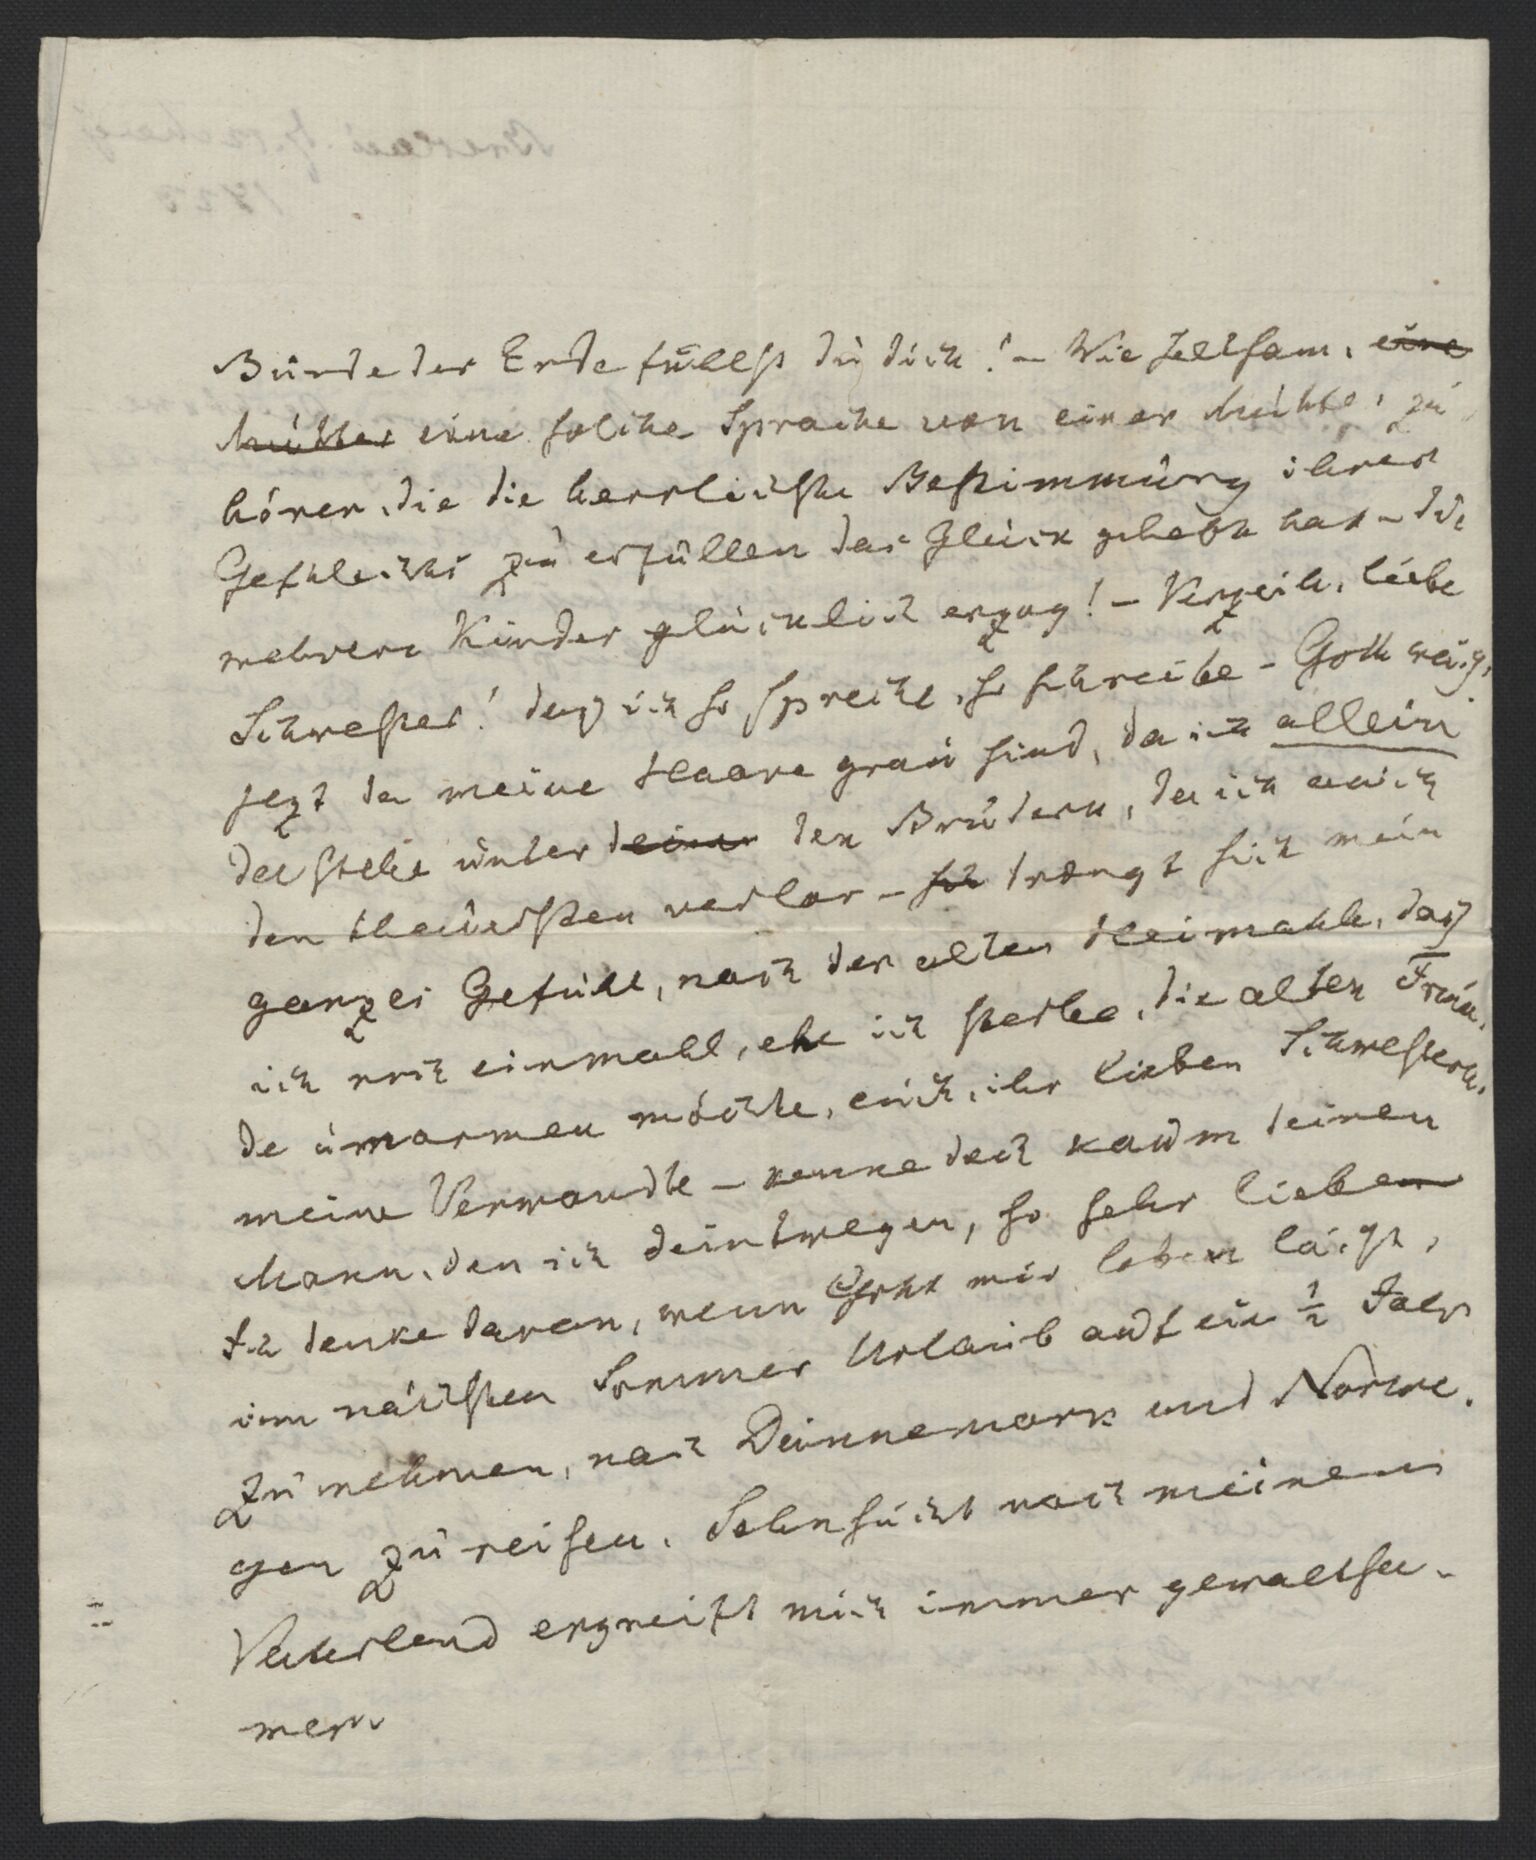 Bürde der Erde fühlst du dich! – Wie seltsam, eine
Mutter eine solche Sprache von einer Mutter zu
hören, die die herrlichste Bestimmung ihres
Geschlechts zu erfüllen das Glück gehabt hat – die
mehrere Kinder glücklich erzog! – Verzeih, liebe
Schwester! daß ich so spreche, so schreibe – Gott weiß,
jezt da meine Haare grau sind, da ich allein
dastehe unter den Brüdern, da ich auch
den theuersten verlor – drängt sich mein
ganzes Gefühl, nach der alten Heimath, daß
ich noch einmahl, ehe ich sterbe, die alten Freun-
de umarmen möchte, euch, ihr lieben Schwestern,
meine Verwandte – kenne doch kaum deinen
Mann, den ich deintwegen, so sehr liebe
Ich denke daran, wenn Gott mir leben läßt,
im nächsten Sommer Urlaub auf ein ½ Jahr
zu nehmen, nach Dännemark und Norwe-
gen zu reisen. Sehnsucht nach meinem
Vaterland ergreift mich immer gewaltsa-
mer.